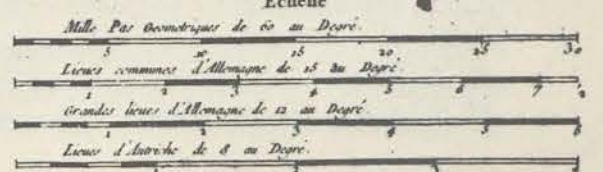 Echelle
Mille Pas Geometriques de 60 au Degré.
5 10 15 20 25 30
Lieues communes d'Allemagne de 15 au Degré.
1 2 3 4 5 6 7 ½
Grandes lieues d'Allemagne de 12 au Degré.
1 2 3 4 5 6
Lieues d'Autriche de 8 au Degré.